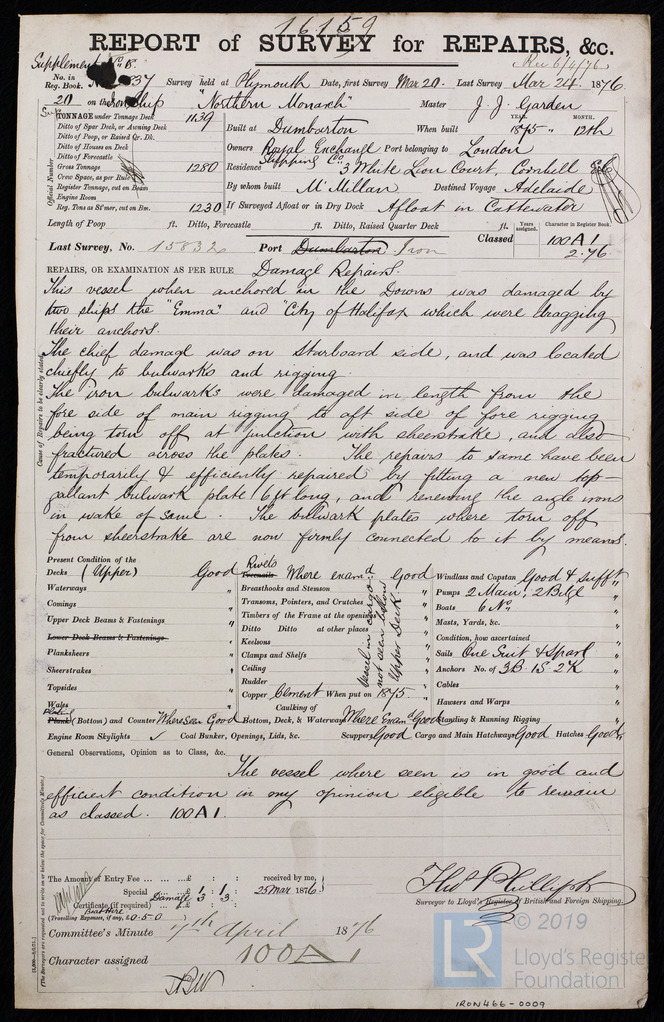 16159
REPORT of SURVEY for REPAIRS, &c.
Supplement No. B. Rec 6/4/76
No. in Reg. Book. 37 Survey held at Plymouth Date, first Survey Mar 20. Last Survey Mar 24. 1876
20 on the Iron Ship "Northern Monach" Master J. J. Garden
TONNAGE under Tonnage Deck 1139
Ditto of Spar Deck, or Awning Deck
Ditto of Poop, or Raised Qr. Dk.
Ditto of Houses on Deck
Ditto of Forecastle
Gross Tonnage 1280
Crew Space, as per Rule
Register Tonnage, cut on Beam
Engine Room
Reg. Tons as St'mer, cut on Bm. 1230
Official Number
Built at Dumbarton When built YEAR. 1875 " MONTH. 12th
Owners Royal Exchange Shipping Co. Port belonging to London
Residence 3 White Lion Court, Cornhill
By whom built McMillan Destined Voyage Adelaide
If Surveyed Afloat or in Dry Dock Afloat in Cattewater
Length of Poop ft. Ditto, Forecastle ft. Ditto, Raised Quarter Deck ft. Years assigned. Character in Register Book.
Last Survey, No. 15832 Port Dumbarton Iron Classed 100A1
2.76
REPAIRS, OR EXAMINATION AS PER RULE Damage Repairs.
Cause of Repairs to be clearly stated.
This vessel when anchored in the Downs was damaged by
two ships the "Emma" and "City of Halifax" which were dragging
their anchors.
The chief damage was on Starboard side, and was located
chiefly to bulwarks and rigging.
The iron bulwarks were damaged in length from the
fore side of main rigging to aft side of fore rigging
being torn off at junction with sheerstrake, and also
fractured across the plates. The repairs to same have been
temporarily & efficiently repaired by fitting a new top-
gallant bulwark plate 16 ft long, and renewing the angle irons
in wake of same. The bulwark plates where torn off
from sheerstrake are now firmly connected to it by means.
Present Condition of the
Decks (Upper) Good
Waterways "
Comings "
Upper Deck Beams & Fastenings "
Lower Deck Beams & Fastenings
Planksheers "
Sheerstrakes "
Topsides "
Wales "
Plating Plank (Bottom) and Counter Where seen Good
Engine Room Skylights ✓ Coal Bunker, Openings, Lids, &c.
Rivets Treenails Where examd. Good
Breasthooks and Stemson
Transoms, Pointers, and Crutches
Timbers of the Frame at the openings
Ditto Ditto at other places
Keelsons
Clamps and Shelfs
Ceiling
Rudder
Vessel in cargo not seen below Upper Deck
Copper Cement When put on 1875
Caulking of
Bottom, Deck, & Waterways Where Examd Good
Scuppers Good Cargo and Main Hatchways Good Hatches Good
Windlass and Capstan Good & sufft "
Pumps 2 Main, 2 Bilge "
Boats 6 No "
Masts, Yards, &c. "
Condition, how ascertained "
Sails One Suit & Spare "
Anchors No. of 3B. 1S. 2K "
Cables "
Hawsers and Warps "
Standing & Running Rigging "
General Observations, Opinion as to Class, &c.
The vessel where seen is in good and
efficient condition in my opinion eligible to remain
as classed. 100A1.
The Amount of Entry Fee ... £ : : received by me,
Special ... £ 1 : 1 : 25 Mar 1876
Damage 3 : 3 :
Certificate (if required)
Boat Hire
(Travelling Expenses, if any, £0-5-0)
Thos Phillips
Surveyor to Lloyd's Register of British and Foreign Shipping.
Committee's Minute 7th April 1876
Character assigned 100A1
(The Surveyors are requested not to write on or below the space for Committee's Minute.)
LR
© 2019
Lloyd's Register
Foundation
IRON466-0009